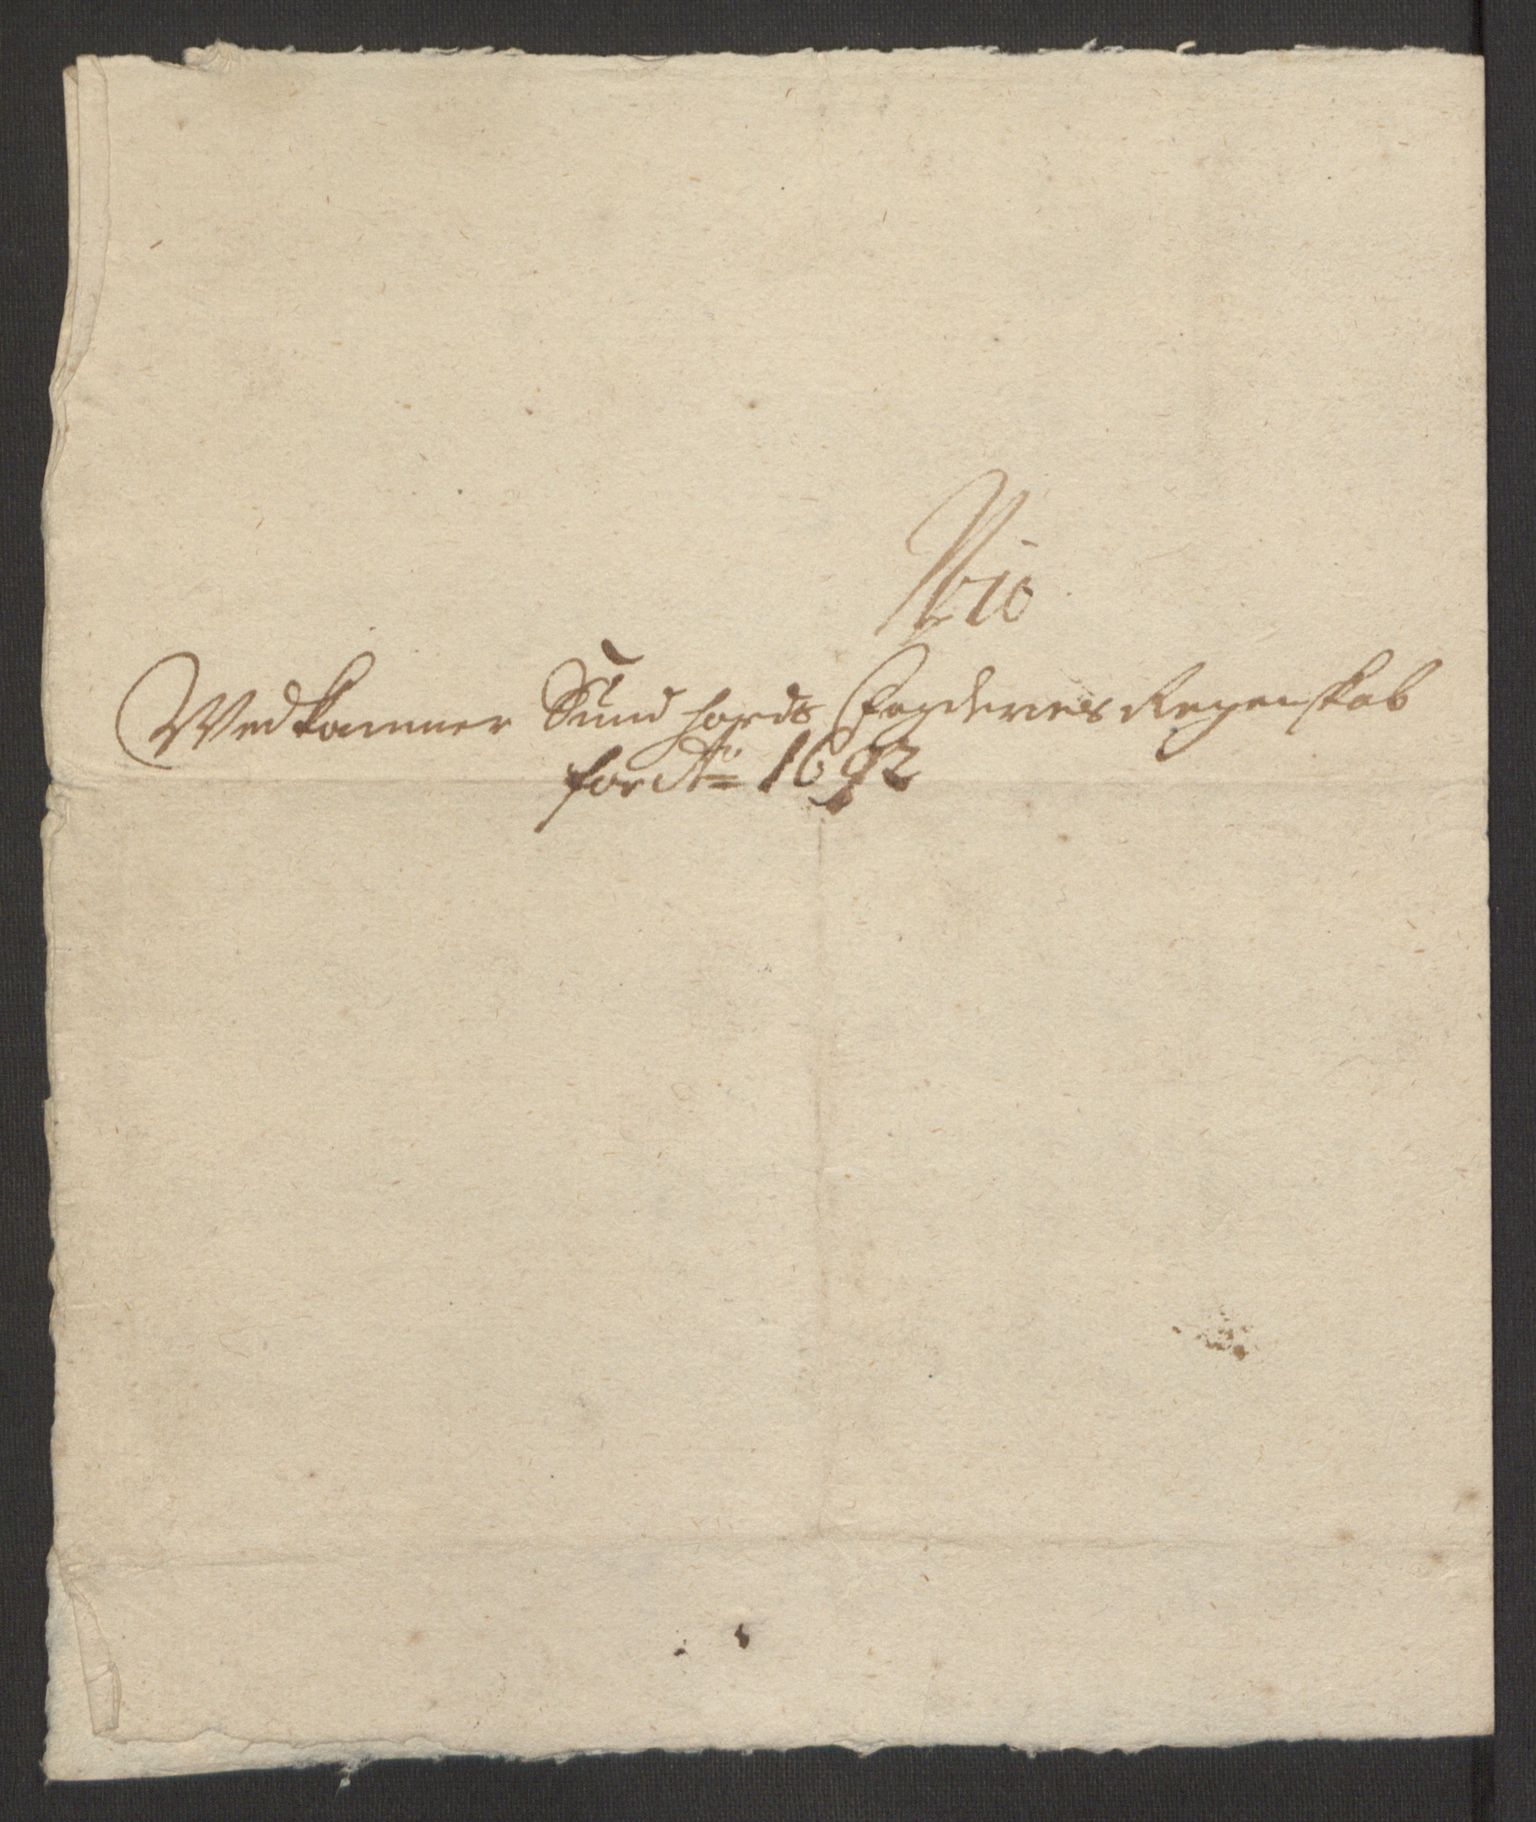 No 10
Wedkommer Sundhords Fogderies Regenskab
for Ao 1692